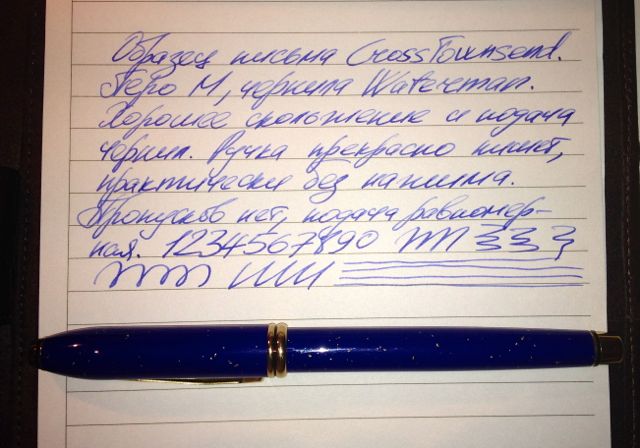 Образец письма Cross Townsend.
Перо М, чернила Waterman.
Хорошее скольжение и подача
чернил. Ручка прекрасно пишет,
практически без нажима.
Пропусков нет, подача равномер-
ная. 1234567890